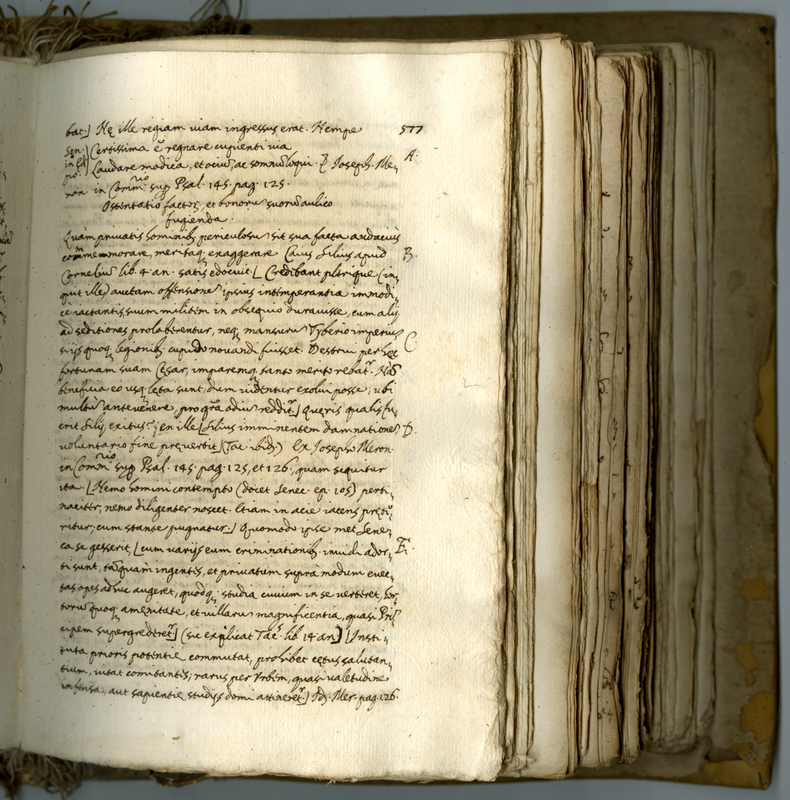 577
bat.] Hę ille regiam uiam ingressus erat. Nempe
Sen: Certissima ẽ regnare cupienti uia
Laudare modica, et ociũ, ac somnũ loqui. Joseph. Me-
A.
non. in Com̃rio sup Psal. 145. pag. 125.
Ostentatio factor, et bonorũ suorũ aulico
fugienda.
Quam priuatis hominib; periculosũ sit sua facta audacius
commemorare, meritaq; exaggerare Caius Silius apud
B.
Corneliũ lib. 4. an. satis edocuit. [Credibant plerique (in-
quit ille) auctam offensionẽ ipsius intemperantia immodi-
ce iactantis suum militem in obsequio durauisse, cum alij
ad seditiones prolaberentur, neq; mansurũ Tyberio imperiũ
si ijs quoq; legionib; cupido nouandi fuisset. Destrui per hęc
C.
fortunam suam Cęsar, imparemq; tanto merito rebatr. Nã
beneficia eo usq; lęta sunt, dum uidentur exolui posse; ubi
multũ anteuenere, pro gr̃a odiũ redditr.] Quęris qualis fu-
erit Silij exitus; en ille [Silius imminentem damnationẽ
D.
uoluntario fine pręuertit (Tac. ibid.) Ex Josepho Meron.
in Com̃rio sup Psal. 145. pag. 125, et 126. quam sequitur
ita. [Nemo homini contempto (docet Senec. ep. 105) perti-
naciter; nemo diligenter nocet. Etiam in acie iacens pręte-
ritur; cum stante pugnatur.] Quomodo ipse met Sene-
ca se gesserit, [cum uarijs eum criminationib; inuidi ador-
E.
ti sunt; tãquam ingentes, et priuatum supra modum euec-
tas opes adhuc augeret, quodq; studia ciuium in se uerteret, hor-
torũ quoq; amęnitate, et uillarũ magnificentia, quasi Prin-
cipem supergrederetr] (sic explicat Tac. lib. 14. an.) [Insti-
tuta prioris potentię commutat, prohibet cętus salutan-
tium, uitat comitantis; rarus per Urbem, quasi ualetudine
infensa, aut sapientię studijs domi attineretr.] Jos. Mer. pag. 126.